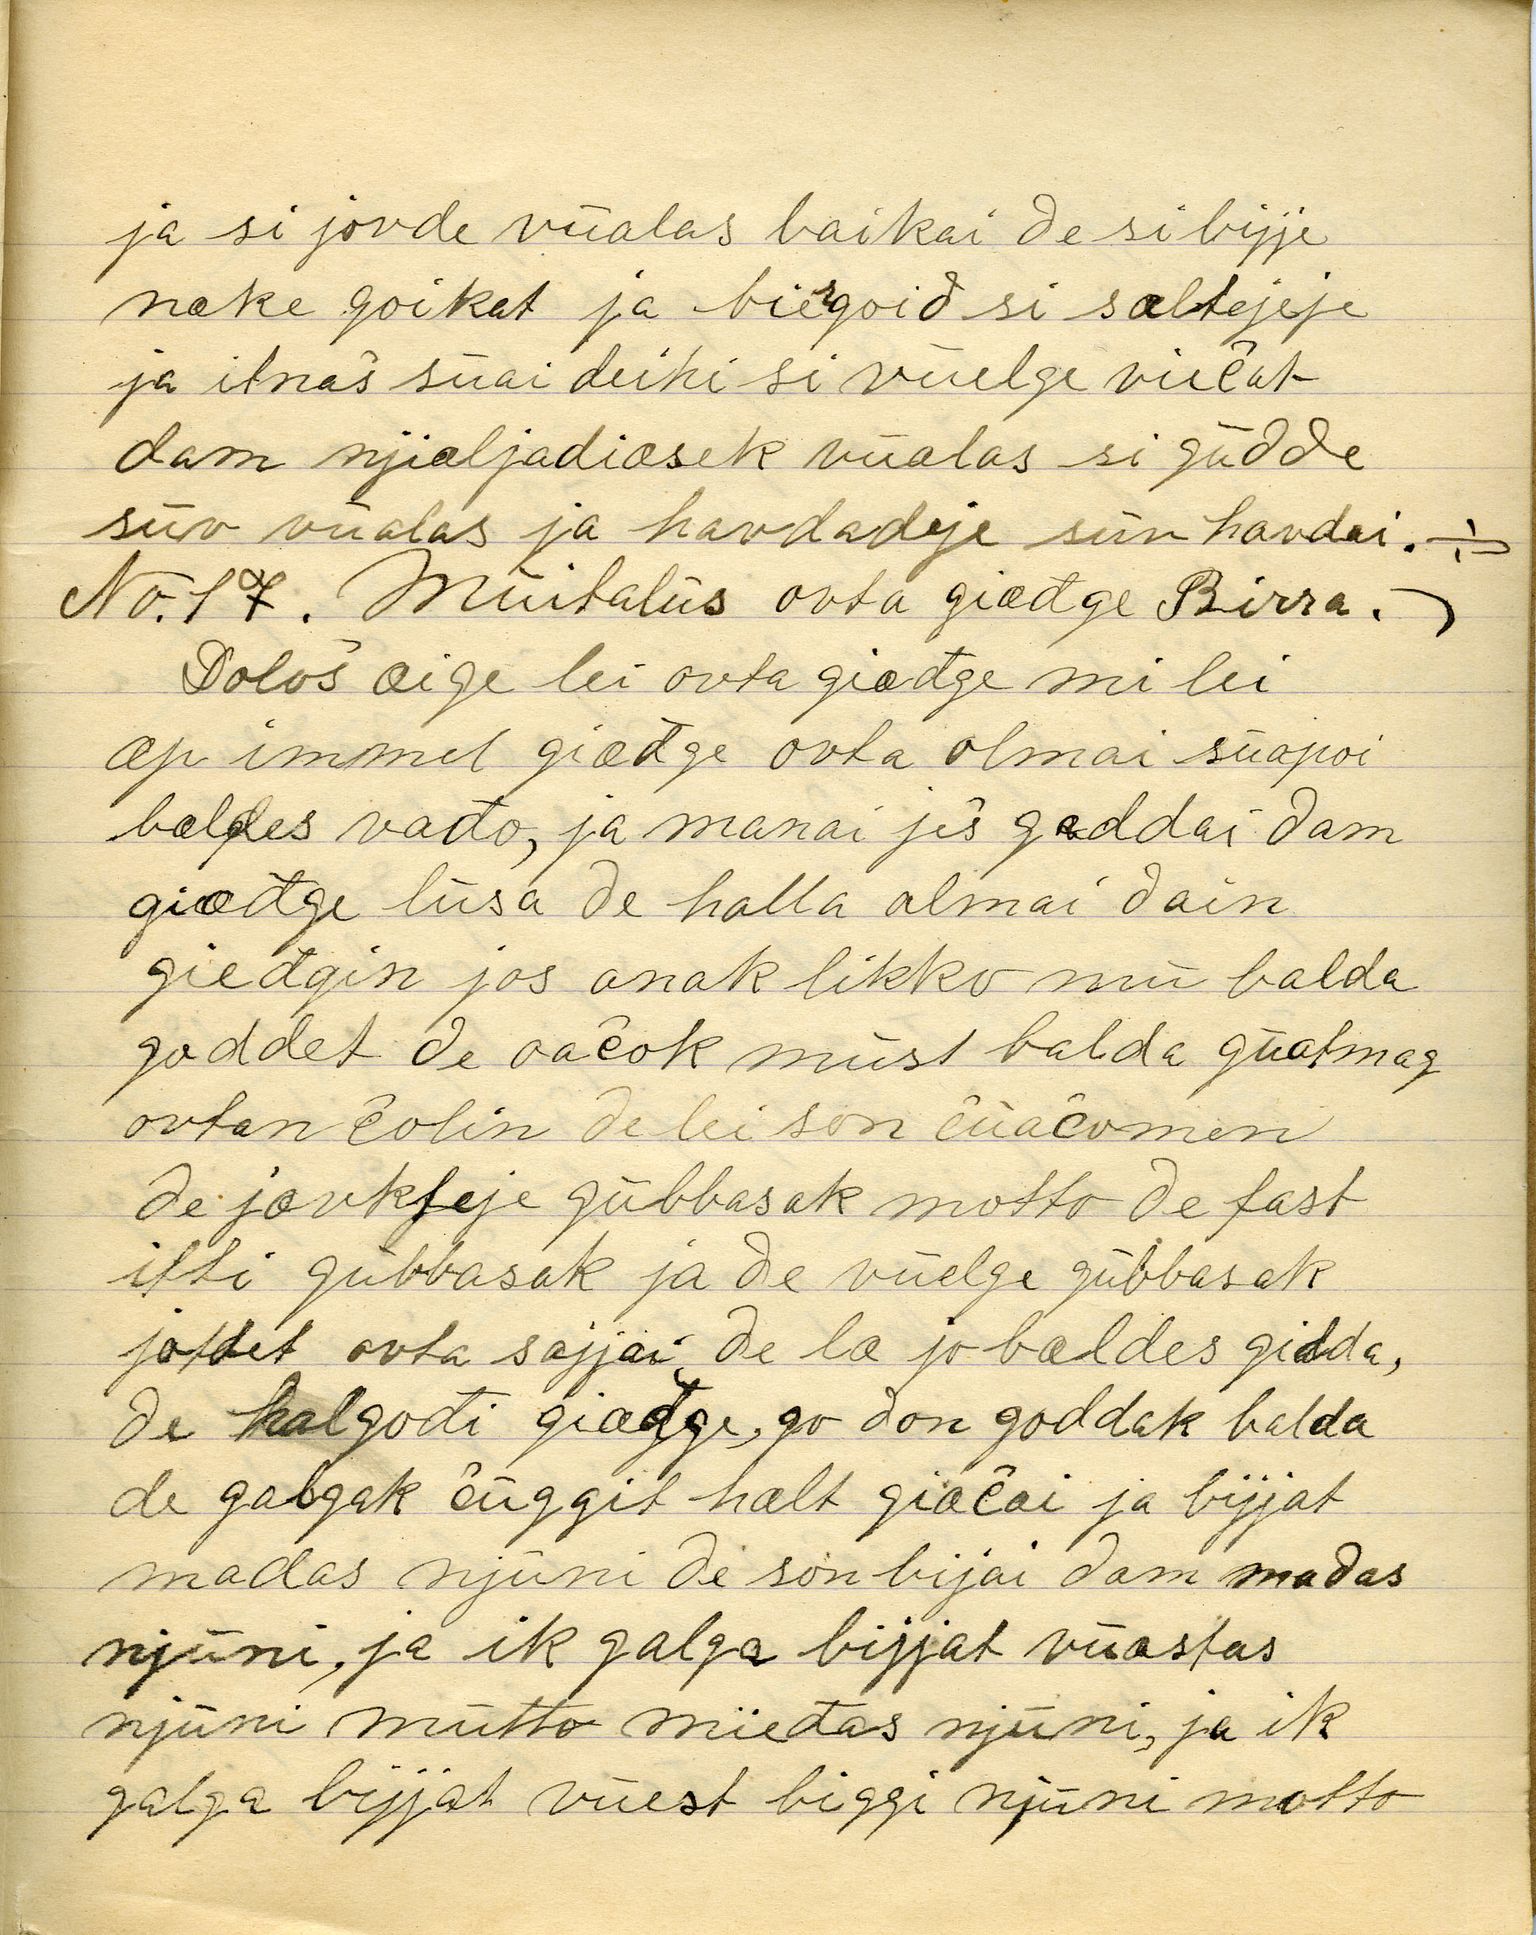 ja si jovde vüalas baikai de si bijje
nake goikat ja biergoid si sæltejeje
ja itnaš süai deihi si vüelge viečat
dam njiæljadiæsek vüalas si güdde
süv vüalas ja havdadeje sün havdai. ÷
No. 17. Müitalüs ovta giædge Birra.
Dološ æige lei ovta giædge mi lei
æp immel giædge ovta olmai süapoi
bældes vađo, ja manai jes gæddai dam
giæđge lüsa de halla olmai dain
gieđgin jos anak likko mü balda
goddet de oačok müst balda güatmag
ovtan čolin de lei son čüačomen
de jævkfeje gübbasak motto de fast
itti gübbasak ja de vüelge gübbasak
jottet ovta sajjai de læ jo bældes gidda,
de halgođi giæđge, go don goddak balda
de galgak čüggit hælt giæčai ja bijjat
madas njüni de son bijai dam madas
njüni, ja ik galga bijjat vüastas
njüni mütto mieđas njüni, ja ik
galga bijjat vüest biggi njüni motto